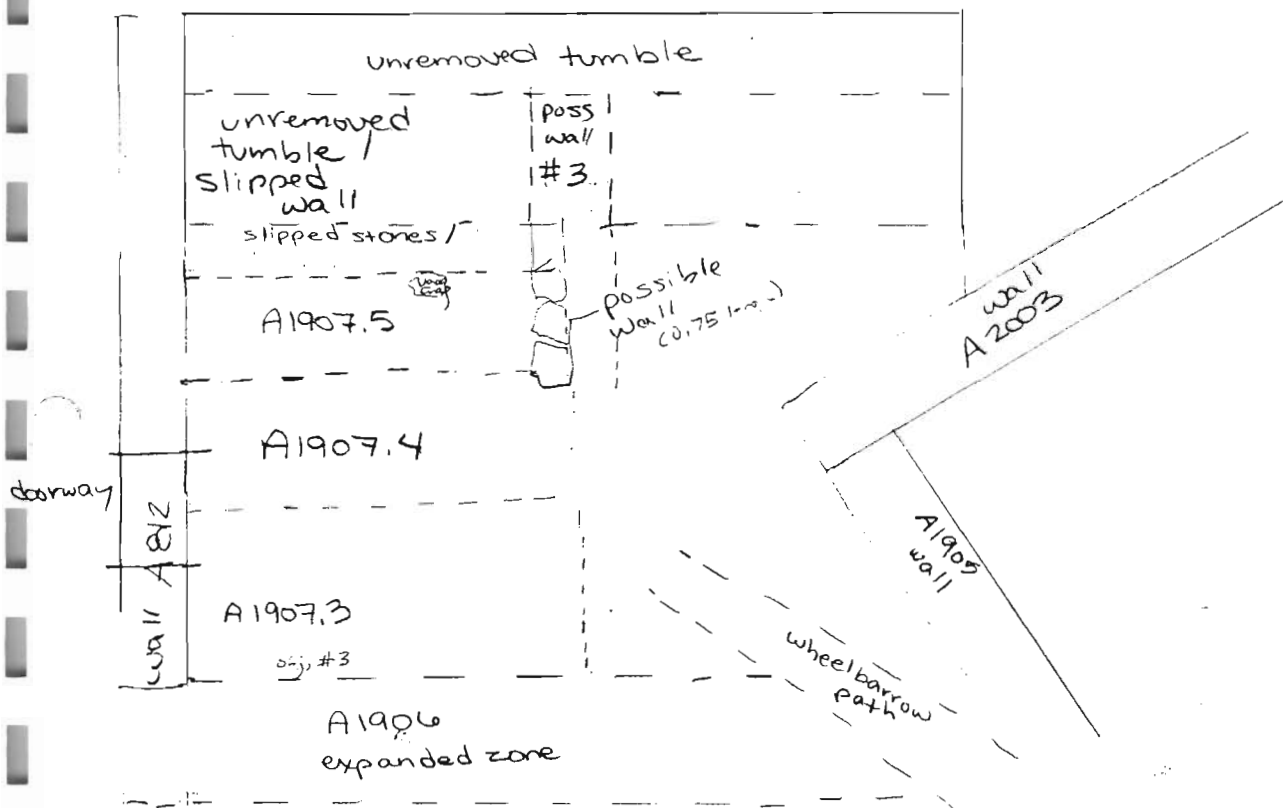 unremoved tumble
unremoved
tumble /
slipped
wall
slipped stones /
poss
wall
#3
possible
wall
A1907.5
wall
A2003
A1907.4
doorway
wall A812
A1905
wall
A1907.3
obj, #3
wheelbarrow
path
A1906
expanded zone